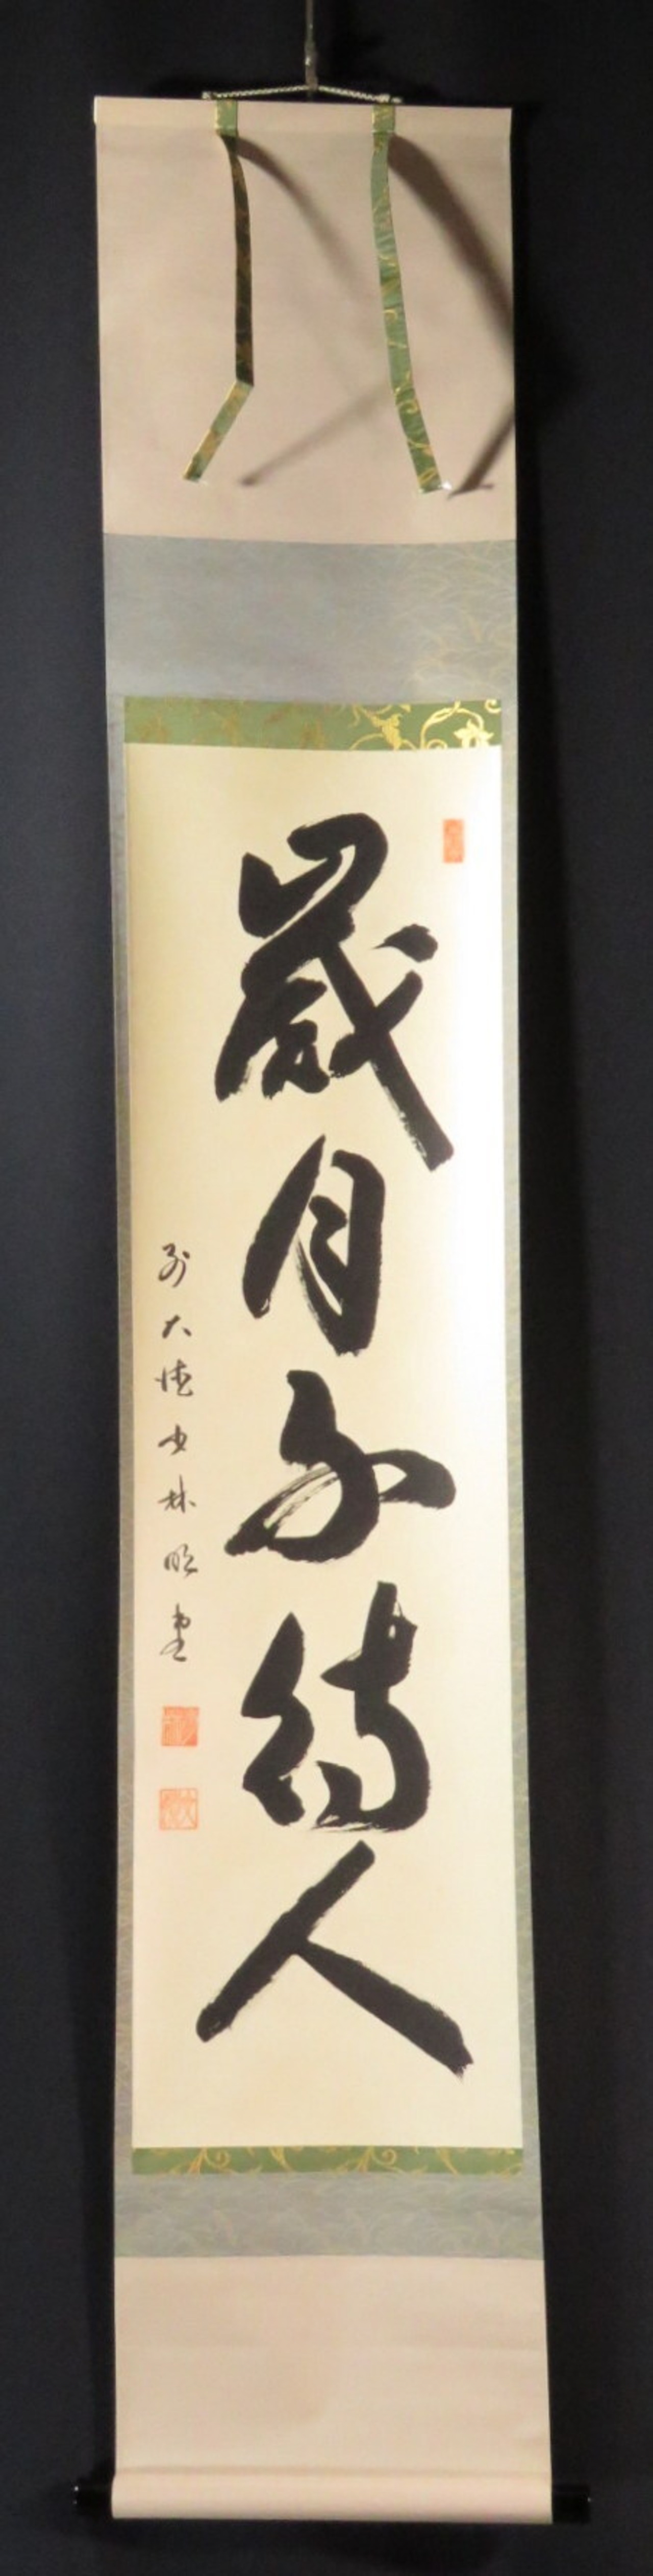 歳月不待人
前大徳少林明堂